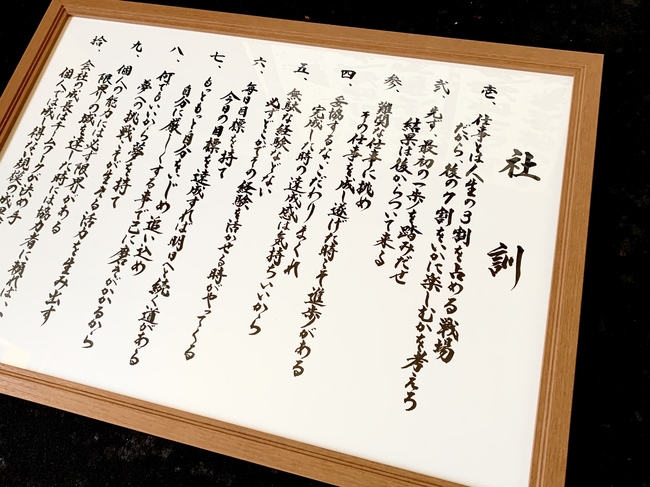 社訓
壱、仕事とは人生の3割を占める戦場
だから後の7割をいかに楽しむかを考えろ
弐、先ず最初の一歩を踏みだせ
結果は後からついて来る
参、難関な仕事に挑め
その仕事を成し遂げた時こそ進歩がある
四、妥協するな、こだわりまくれ
完成した時の達成感は気持ちいいから
五、無駄な経験などない
必ずどこかでその経験を活かせる時がやってくる
六、毎日目標を持て
今日の目標を達成すれば明日へと続く道がある
七、もっともっと自分をいじめ追い込め
自分に厳しくする事で己に磨きがかかるから
八、何でもいいから夢を持て
夢への挑戦こそが生きる活力を生み出す
九、個人の能力には必ず限界がある
限界の域を達した時には協力者に頼ればいい
拾、会社の成長はチームワークが決め手
個人では成し得ない規模の成果